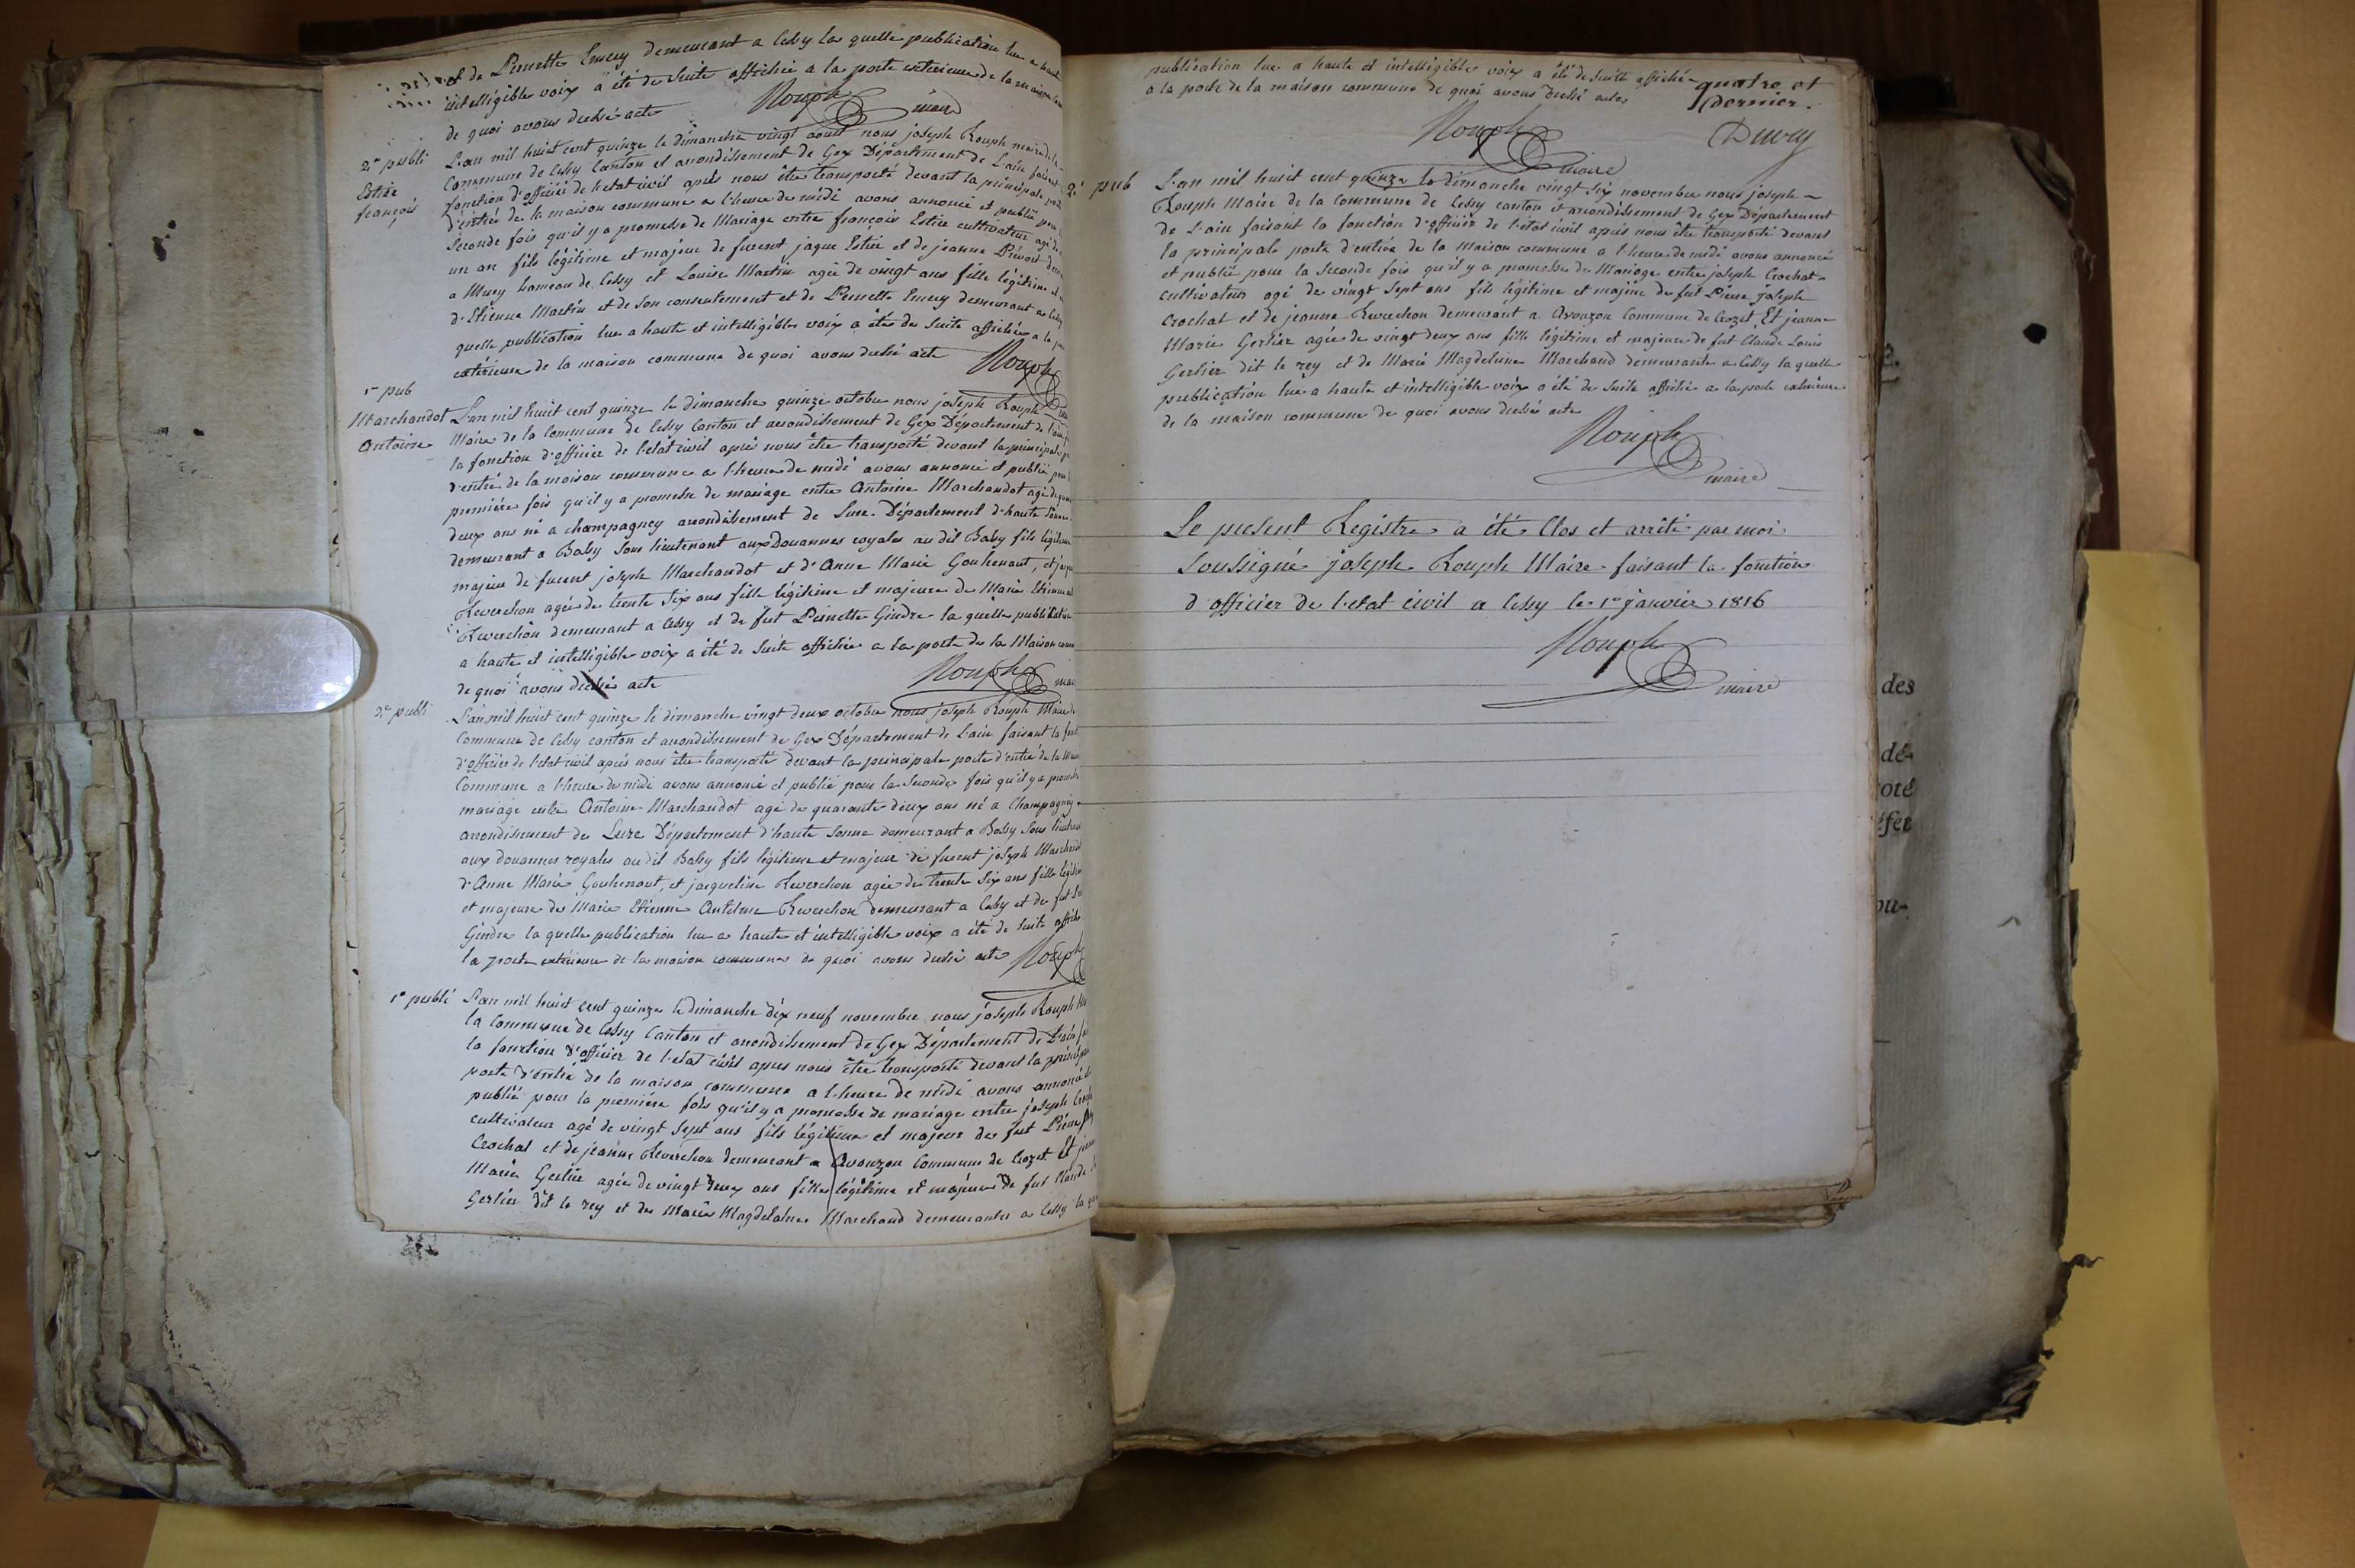 et de Pernette Emery demeurant a Cessy la quelle publication lue a haute
intelligible voix a été de suite affichée a la porte exterieure de la maison
de quoi avons dressé acte
Rouph maire
2e publi
Estier
françois
L'an mil huit cent quinze le dimanche vingt aout nous joseph Rouph maire de la
Commune de Cessy Canton et arondissement de Gex Département de L'ain faisant
fonction d'officier de l'etat civil après nous être transporté devant la principale porte
d'entrée de la maison commune a l'heure de midi avons annoncé et publié pour
seconde fois qu'il y a promesse de Mariage entre françois Estier cultivateur agé de
un an fils légitime et majeur de furent jaque Estier et de jeanne
a Mury hameau de Cessy et Louise Martin agée de vingt ans fille légitime
d'Etienne Martin et de son consentement et de Pernette Emery demeurant a Cessy
quelle publication lue a haute et intelligible voix a été de suite affichée a la
extérieure de la maison commune de quoi avons dressé acte Rouph
1re pub
Marchandot
Antoine
L'an mil huit cent quinze le dimanche quinze octobre nous joseph Rouph
Maire de la Commune de Cessy Canton et arondissement de Gex Département de l'ain
la fonction d'officier de l'etat civil après nous être transporté devant la principale
d'entrée de la maison commune a l'heure de midi avons annoncé et publié pour
première fois qu'il y a promesse de mariage entre Antoine Marchandot agé de
deux ans né a champagney arondissement de Lure Département d'haute Sonne
demeurant a Balsy sous lieutenant aux Douannes royales au dit Balsy fils légitime
majeur de furent joseph Marchandot et d'Anne Marie Gouhenant, et
Reverchon agée de trente six ans fille légitime et majeure de Marie Etienne
Reverchon demeurant a Cessy et de fut Pernette Gindre la quelle publication
a haute et intelligible voix a été de suite affichée a la porte de la Maison
de quoi avons dressé acte Rouph
2e publi
L'an mil huit cent quinze le dimanche vingt deux octobre nous joseph Rouph Maire
Commune de Cessy canton et arondissement de Gex Département de L'ain faisant la
d'officier de l'etat civil après nous être transporté devant la principale porte d'entré de la
Commune a l'heure de midi avons annoncé et publié pour la seconde fois qu'il y a
mariage entre Antoine Marchandot agé de quarante deux ans né a Champagney
arondissement de Lure Département d'haute Sonne demeurant a Balsy Sous
aux douannes royales au dit Balsy fils légitime et majeur de furent joseph
d'Anne Marie Gouhenant, et jacqueline Reverchon agée de trente six ans fille
et majeure de Marie Etienne Antelme Reverchon demeurant a Cessy et de fut
Gindre la quelle publication lue a haute et intelligible voix a été de suite
la porte extérieure de la maison commune de quoi avons dressé acte Rouph
1re publi
L'an mil huit cent quinze le dimanche dix neuf novembre nous joseph Rouph
la Commune de Cessy Canton et arondissement de Gex Département de L'ain
la fonction d'officier de l'etat civil apres nous être transporté devant la
porte d'entrée de la maison commune a l'heure de midi avons annoncé
publié pour la première fois qu'il y a promesse de mariage entre joseph
cultivateur agé de vingt sept ans fils légitime et majeur de fut Pierre
Crochat et de jeanne Reverchon demeurant a Avouzon Commune de Crozet Et
Marie Gerlier agée de vingt deux ans fille légitime et majeure de fut Claude
Gerlier dit le rey et de Marie Magdelaine Marchand demeurante a Cessy la
publication lue a haute et intelligible voix a été de suite affichée
a la porte de la maison commune de quoi avons dressé acte
quatre et
dernier.
Rouph maire
2e pub
L'an mil huit cent quinze le dimanche vingt six novembre nous joseph
Rouph Maire de la Commune de Cessy canton et arondissement de Gex Département
de L'ain faisant la fonction d'officier de l'etat civil apres nous être transporté devant
la principale porte d'entrée de la maison commune a l'heure de midi avons annoncé
et publié pour la seconde fois qu'il y a promesse de Mariage entre joseph Crochat
cultivateur agé de vingt sept ans fils légitime et majeur de fut Pierre joseph
Crochat et de jeanne Reverchon demeurant a Avouzon Commune de Crozet, Et jeanne
Marie Gerlier agée de vingt deux ans fille légitime et majeure de fut Claude Louis
Gerlier dit le rey et de Marie Magdeleine Marchand demeurante a Cessy la quelle
publication lue a haute et intelligible voix a été de suite affichée a la porte extérieure
de la maison commune de quoi avons dressé acte
Rouph
maire
Le present Registre a été Clos et arrêté par moi
Soussigné joseph Rouph Maire faisant la fonction
d'officier de l'etat civil a Cessy le 1er janvier 1816
Rouph
maire
des
dé-
oté
éfet
ou-